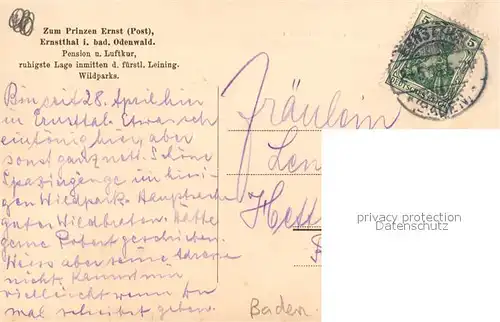 Zum Prinzen Ernst (Post),
Ernstthal i. bad. Odenwald.
Pension u. Luftkur,
ruhigste Lage inmitten d. fürstl. Leining.
Wildparks.
Bin seit 28. April hier
in Ernsttal. Etwas sehr
eintönig hier, aber
sonst ganz nett. Schöne
Spaziergänge im hiesi-
gen Wildpark. Hauptsache
guter Wildbraten. Hätte
gerne Robert geschrieben.
Weiss aber seine Adresse
nicht. Kannst mir
vielleicht wenn Du
mal schreibst geben.
Fräulein
Len
Hett
Baden.
5 5
BADEN.
privacy protection
Datenschutz